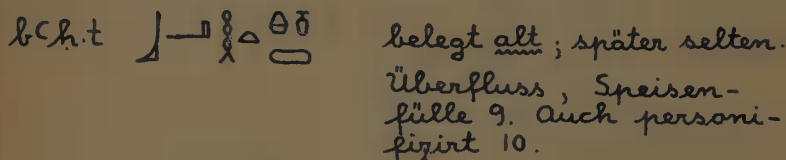 bꜥḥ.t 𓃀𓂝𓎛𓏏 belegt alt; später selten.
Überfluss, Speisen-
fülle 9. Auch personi-
fizirt 10.